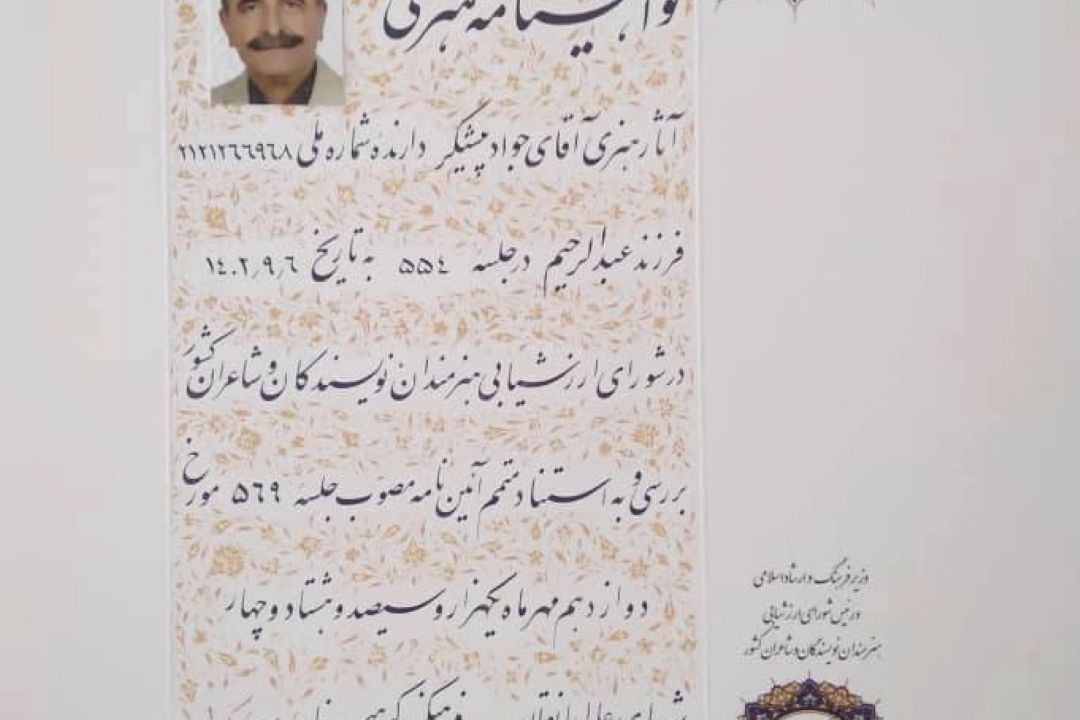 گواهینامه هنری
آثار هنری آقای جواد پیشگر دارنده شماره ملی ۲۱۲۱۲۶۶۹۶۸
فرزند عبدالرحیم در جلسه ۵۵۴ به تاریخ ۱۴۰۲٫۹٫۶
در شورای ارزشیابی هنرمندان نویسندگان و شاعران کشور
بررسی و به استناد متمم آئین نامه مصوب جلسه ۵۶۹ مورخ
دوازدهم مهرماه یکهزار و سیصد و هشتاد و چهار
شورای عالی انقلاب فرهنگی
وزیر فرهنگ و ارشاد اسلامی
و رئیس شورای ارزشیابی
هنرمندان نویسندگان و شاعران کشور